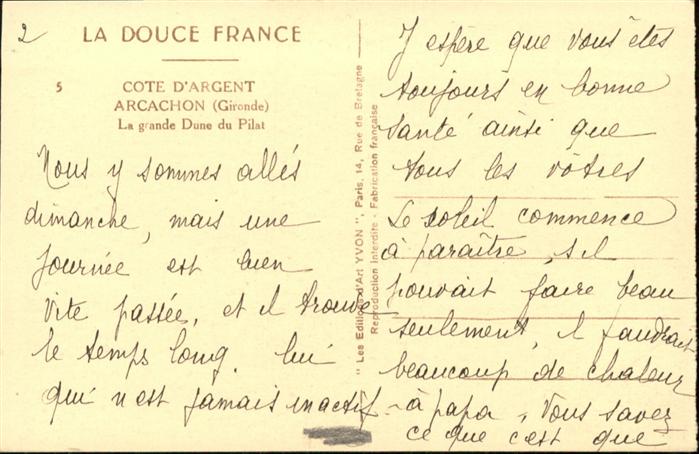 2
LA DOUCE FRANCE
5
COTE D'ARGENT
ARCACHON (Gironde)
La grande Dune du Pilat
Nous y sommes allés
dimanche, mais une
journée est bien
vite passée, et il trouve
le temps long, lui
qui n'est jamais inactif -
" Les Editions d'Art YVON ", Paris, 14, Rue de Bretagne
Reproduction interdite - Fabrication française
J espère que vous êtes
toujours en bonne
santé ainsi que
tous les vôtres
Le soleil commence
à paraître, s il
pouvait faire beau
seulement, il faudrait
beaucoup de chaleur
à papa, Vous savez
ce que c'est que